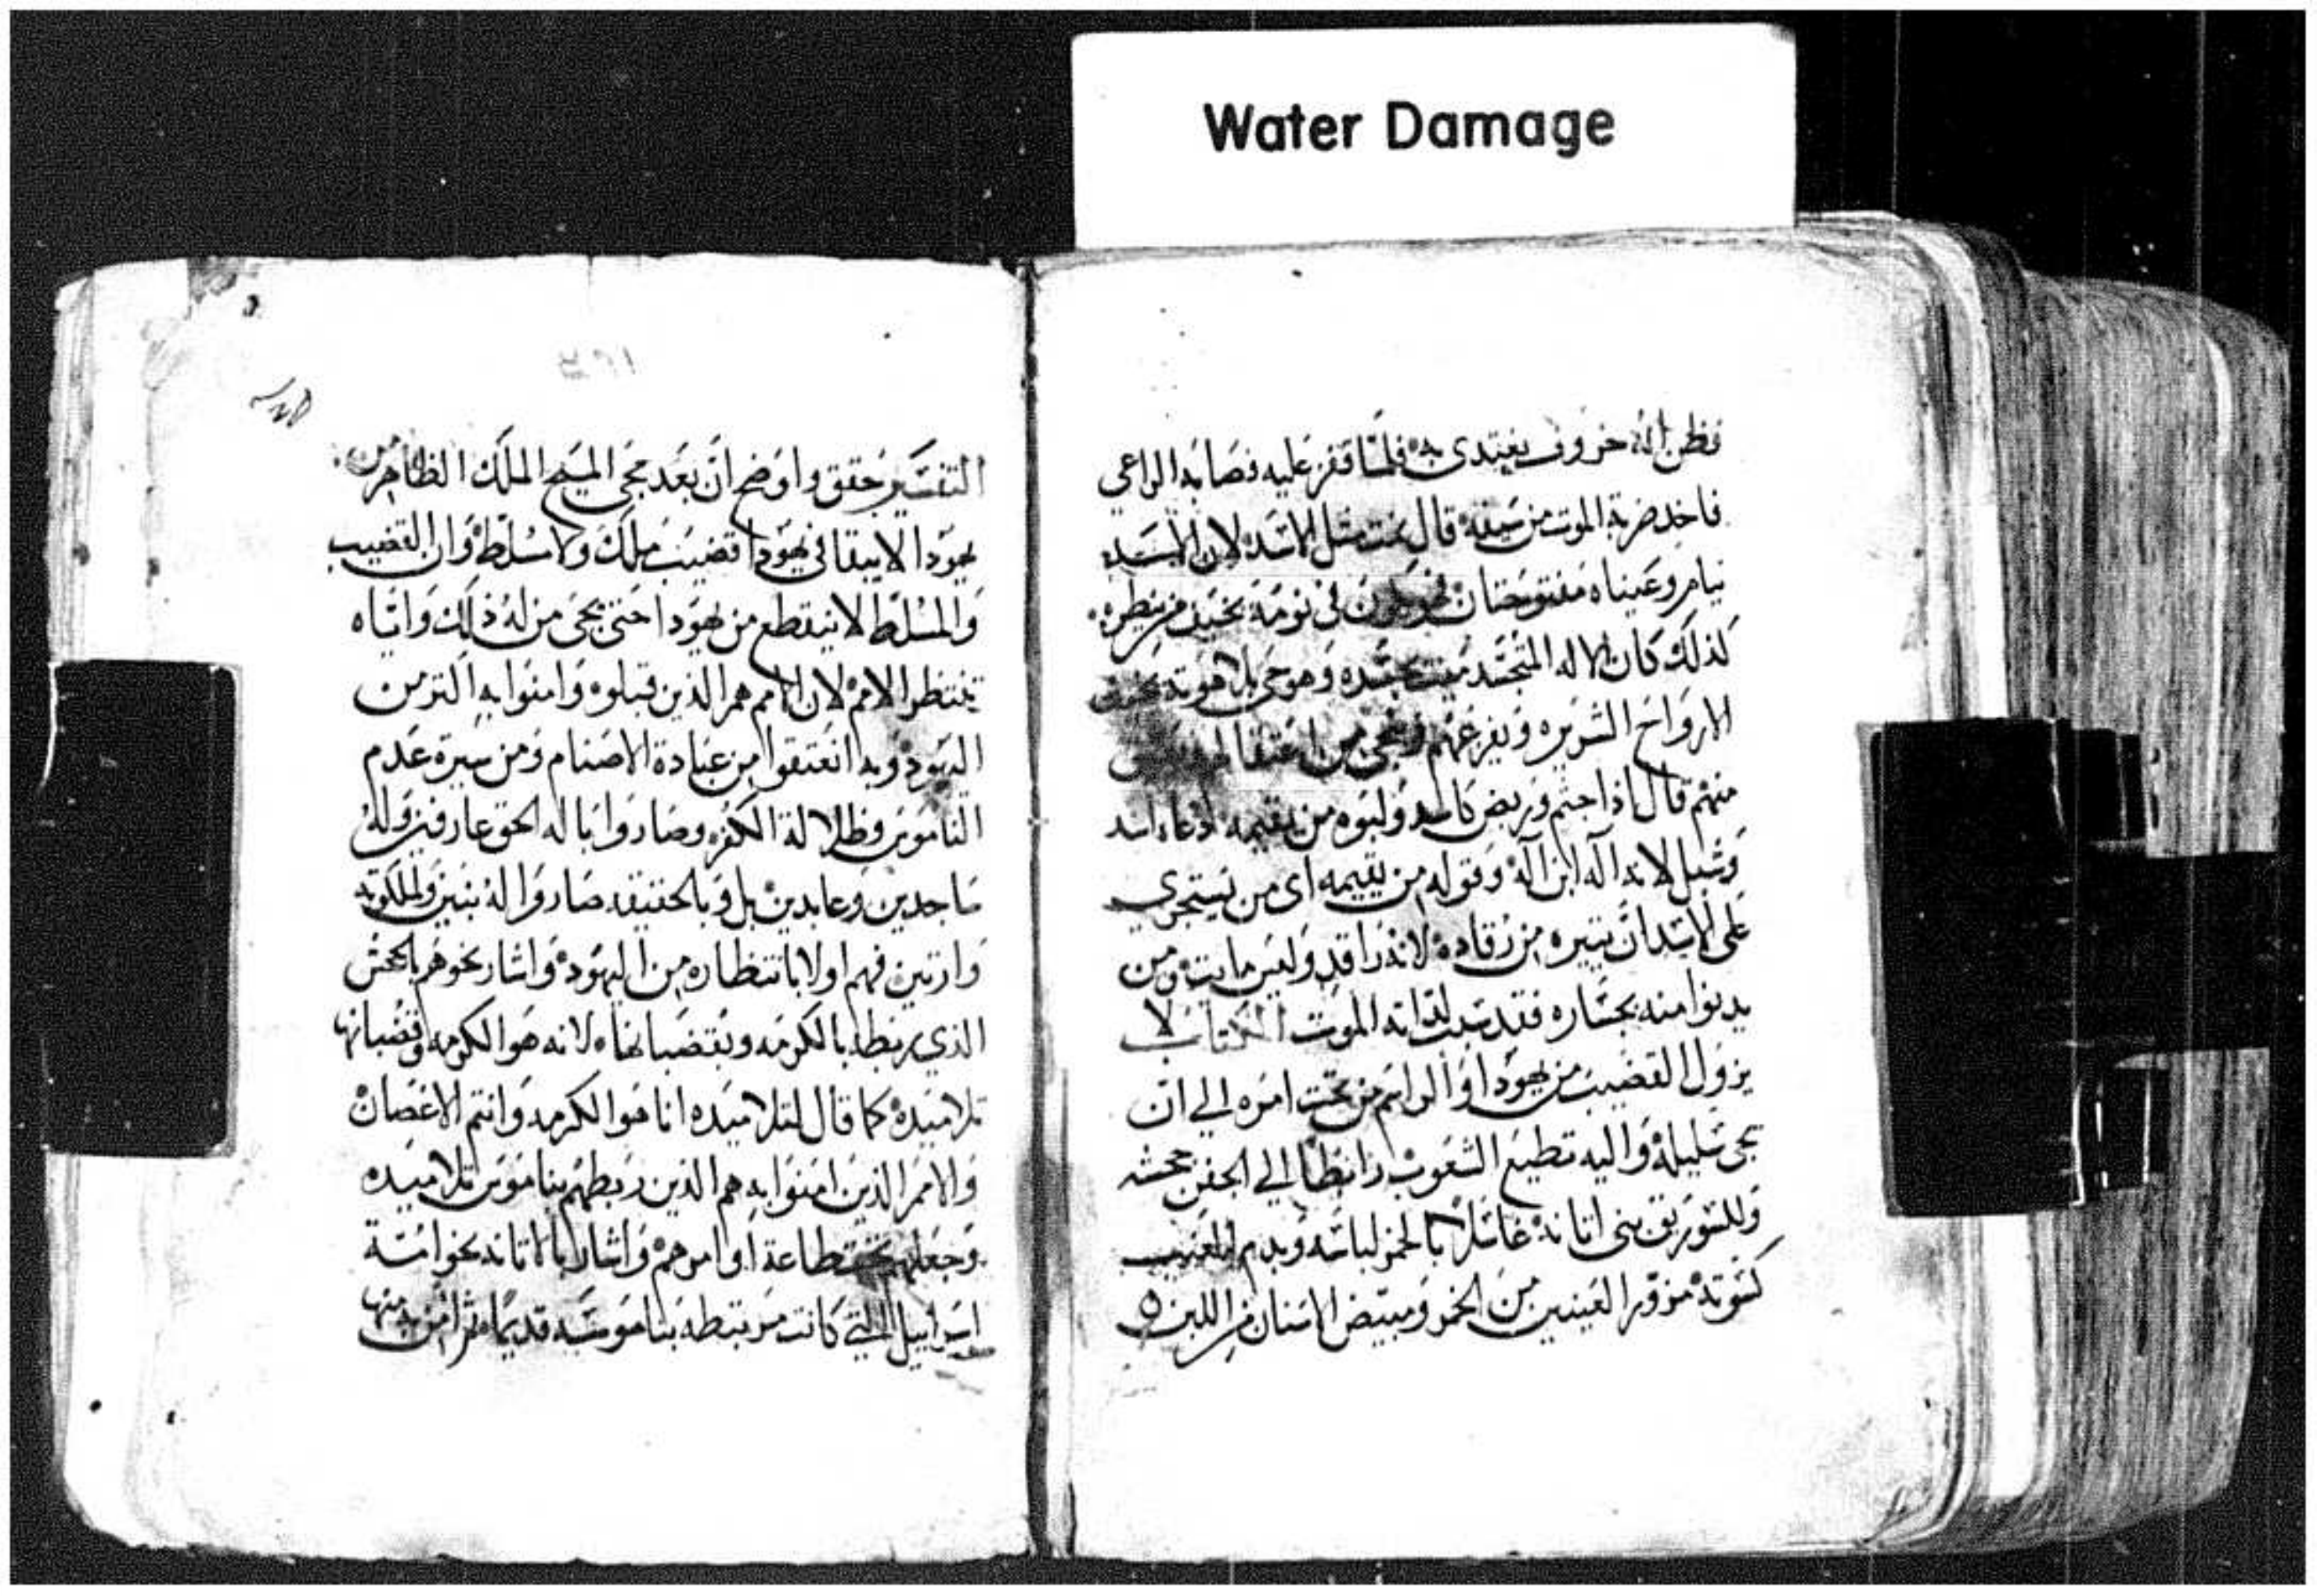 Water Damage
فظن انه خروف يغتدى به فلما قفز عليه فصابه الراعي
فاخذ ضربة الموت من سيفه قال نمت مثل الاسد لان الاسد
ينام وعيناه مفتوحتان في نومه يخيف من ينظره
كذلك كان الاله المتجسد ميت بجسده وهو حي بلاهوته يخيف
الارواح الشريره ويفزعهم وينجي من
منهم قال اذا جثم وربض كاسد ولبوه من يقيمه ادعاه اسد
وشبل لانه اله ابن اله وقوله من يقيمه اى من يستجري
على الاسد ان يثيره من رقاده لانه راقد وليس مايت ومن
يدنوا منه بجساره فقد سبب لذاته الموت الكتاب لا
يزول القضيب من يهودا والراسم من تحت امره الي ان
يجى سليله واليه تطيع الشعوب رابطا الي الجفن جحشه
وللسوريق بنى اتانه غاسلا بالخمر لباسه وبدم العنب
كسوته مزور العينين من الخمر ومبيض الاسنان من اللبن
التفسير حقق واوضح ان بعد مجى المسيح الملك الظاهر من
يهودا لا يبقا في يهودا قضيب ملك ولا سلط وان القضيب
والمسلط لا ينقطع من يهودا حتى يجى من له ذلك واياه
تنتظر الامم لان الامم هم الذين قبلوه وامنوا به اكتر من
اليهود وبه انعتقوا من عبادة الاصنام ومن سيرة عدم
الناموس وظلالة الكفره وصاروا باله الحق عارفين وله
ساجدين وعابدين بل وبالحقيقه صاروا له بنين ولملكوته
وارتين فهم اولا بانتظاره من اليهود واشار نحوهم بالجحش
الذي يربط بالكرمه وبقضبانها لانه هو الكرمه وقضبانها
تلاميده كما قال لتلاميده انا هو الكرمه وانتم الاغصان
والامم الذين امنوا به هم الذين ربطهم بناموس تلاميده
وجعلهم تحت طاعة اوامرهم واشار بالاتانه نحو امة
اسراييل التي كانت مرتبطه بناموسه قديما ثم امن به منها